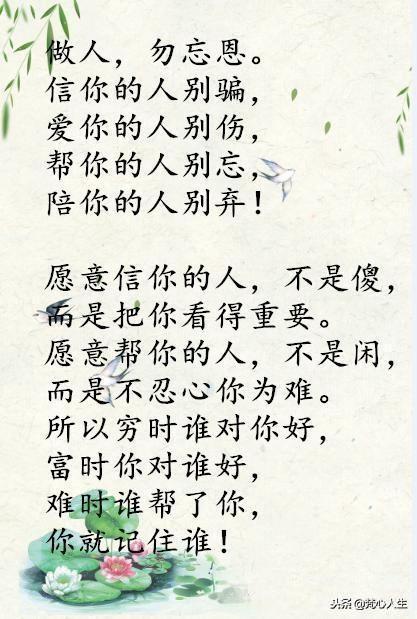 做人，勿忘恩。
信你的人别骗，
爱你的人别伤，
帮你的人别忘，
陪你的人别弃！
愿意信你的人，不是傻，
而是把你看得重要。
愿意帮你的人，不是闲，
而是不忍心你为难。
所以穷时谁对你好，
富时你对谁好，
难时谁帮了你，
你就记住谁！
头条@梵心人生